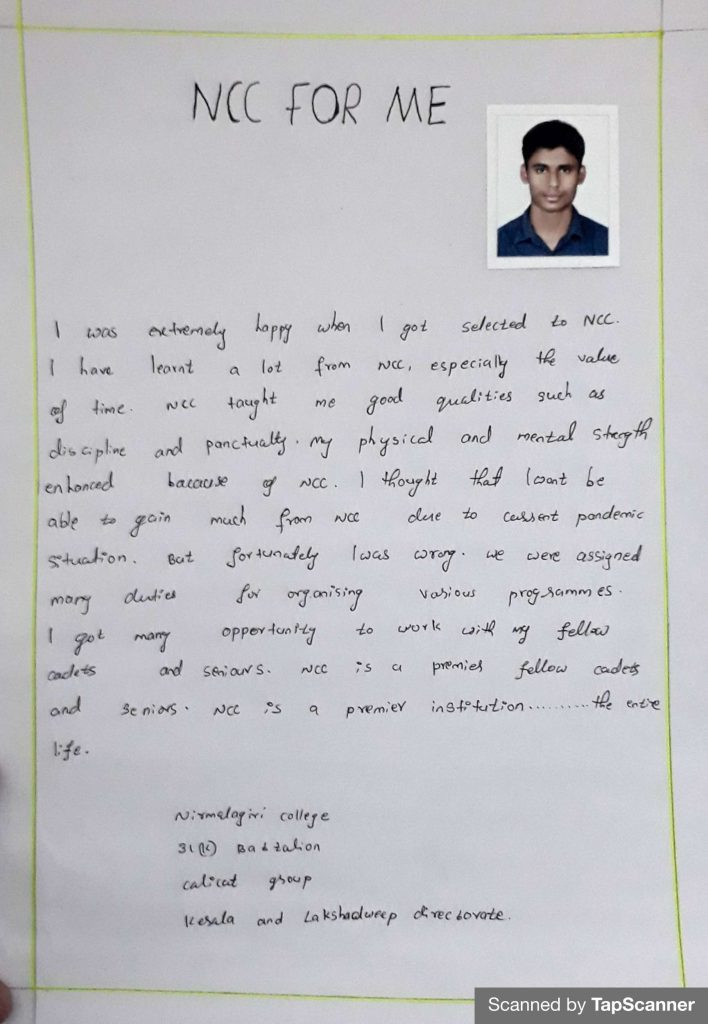 NCC FOR ME
I was extremely happy when I got selected to NCC.
I have learnt a lot from NCC, especially the value
of time. NCC taught me good qualities such as
discipline and punctually. My physical and mental stregth
enhanced bacause of NCC. I thought that I wont be
able to gain much from NCC due to current pandemic
situation. But fortunately I was wrong. we were assigned
many duties for organising various programmes.
I got many opportunity to work with my fellow
cadets and seniors. NCC is a premier fellow cadets
and seniors. NCC is a premier institution.........the entire
life.
Nirmalagiri college
31(K) Battalion
calicat group
Kerala and Lakshadweep directorate.
Scanned by TapScanner